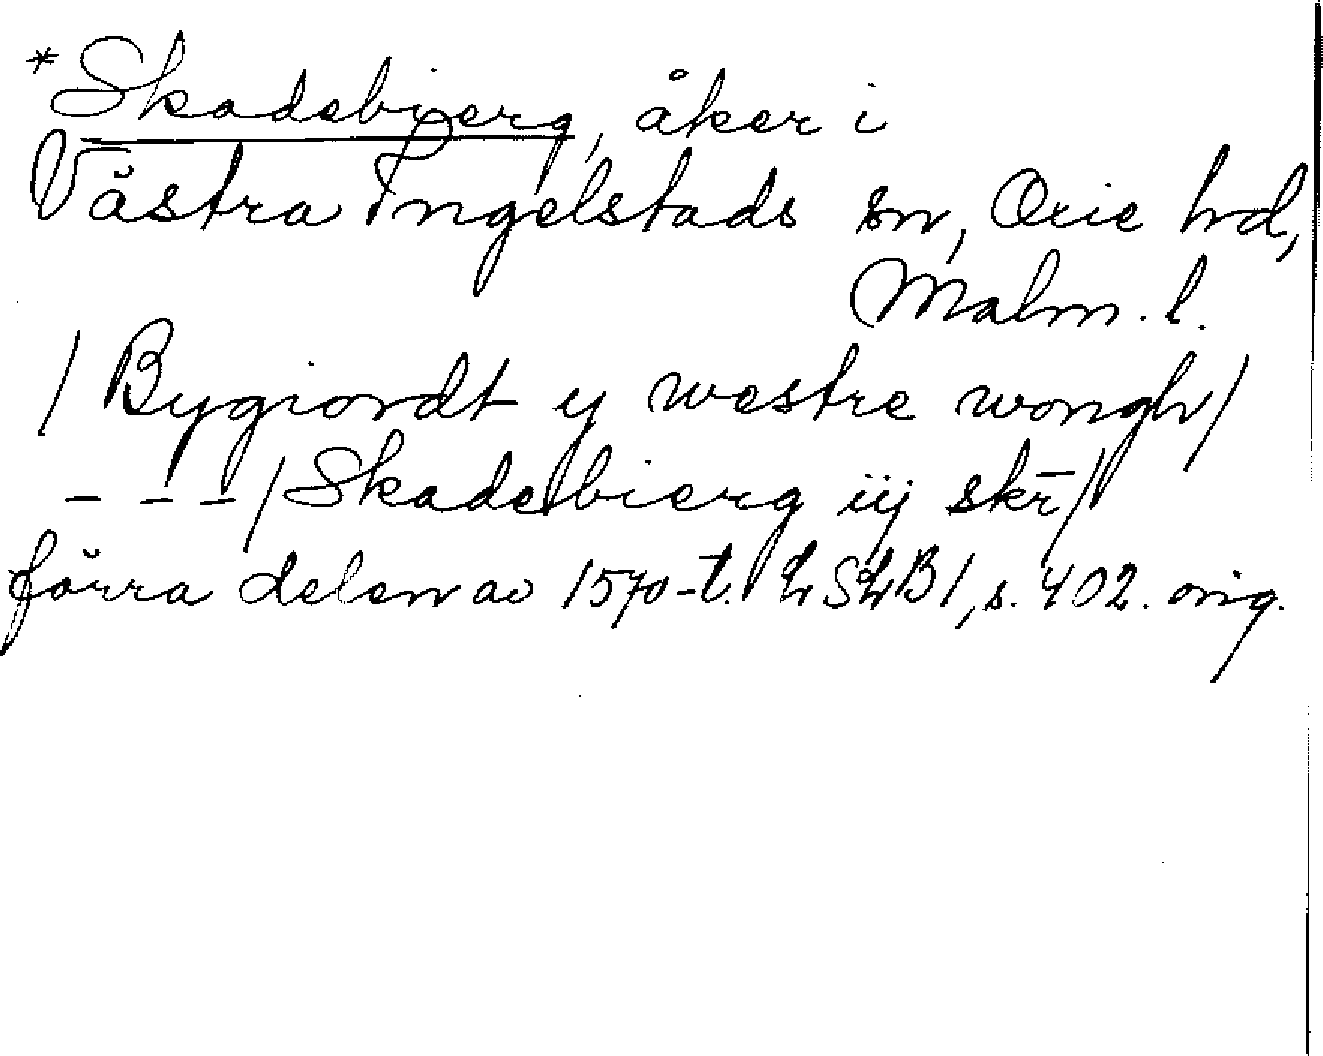 *Skadebierg, åker i
Västra Ingelstads sn, Oxie hd,
Malm. l.
/ Bygiordt y westre wongh /
- - - / Skadebierg iij skr /
förra delen av 1570-t. LSLB1, s. 402. orig.